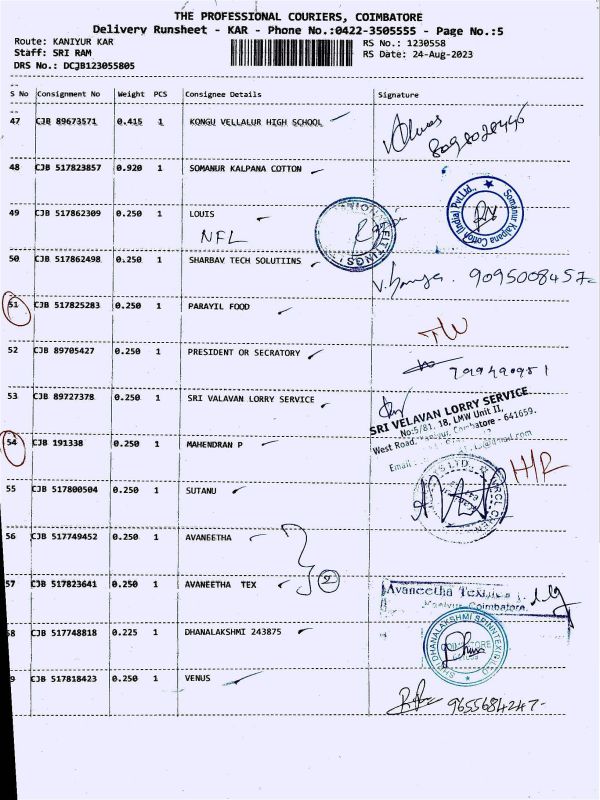 THE PROFESSIONAL COURIERS, COIMBATORE
Delivery Runsheet - KAR - Phone No.:0422-3505555 - Page No.:5
Route: KANIYUR KAR
RS No.: 1230558
Staff: SRI RAM
RS Date: 24-Aug-2023
DRS No.: DCJB123055805
S No Consignment No Weight PCS Consignee Details Signature
47 CJB 89673571 0.415 1 KONGU VELLALUR HIGH SCHOOL
48 CJB 517823857 0.920 1 SOMANUR KALPANA COTTON
Somanur Kalpana Cotton (India) Pvt.Ltd.,
49 CJB 517862309 0.250 1 LOUIS
NFL
50 CJB 517862498 0.250 1 SHARBAV TECH SOLUTIINS
9095008457
51 CJB 517825283 0.250 1 PARAYIL FOOD
52 CJB 89705427 0.250 1 PRESIDENT OR SECRATORY
53 CJB 89727378 0.250 1 SRI VALAVAN LORRY SERVICE
SRI VELAVAN LORRY SERVICE
No:5/81, 18, LMW Unit II,
West Road, Kaniyur, Coimbatore - 641659.
Email
54 CJB 191338 0.250 1 MAHENDRAN P
H/R
55 CJB 517800504 0.250 1 SUTANU
56 CJB 517749452 0.250 1 AVANEETHA
2
57 CJB 517823641 0.250 1 AVANEETHA TEX
Avaneetha Textiles
Kaniyur Coimbatore.
8 CJB 517748818 0.225 1 DHANALAKSHMI 243875
SHRI DHANALAKSHMI SPINNTEX (P) LTD
COIMBATORE
9 CJB 517818423 0.250 1 VENUS
9655684247